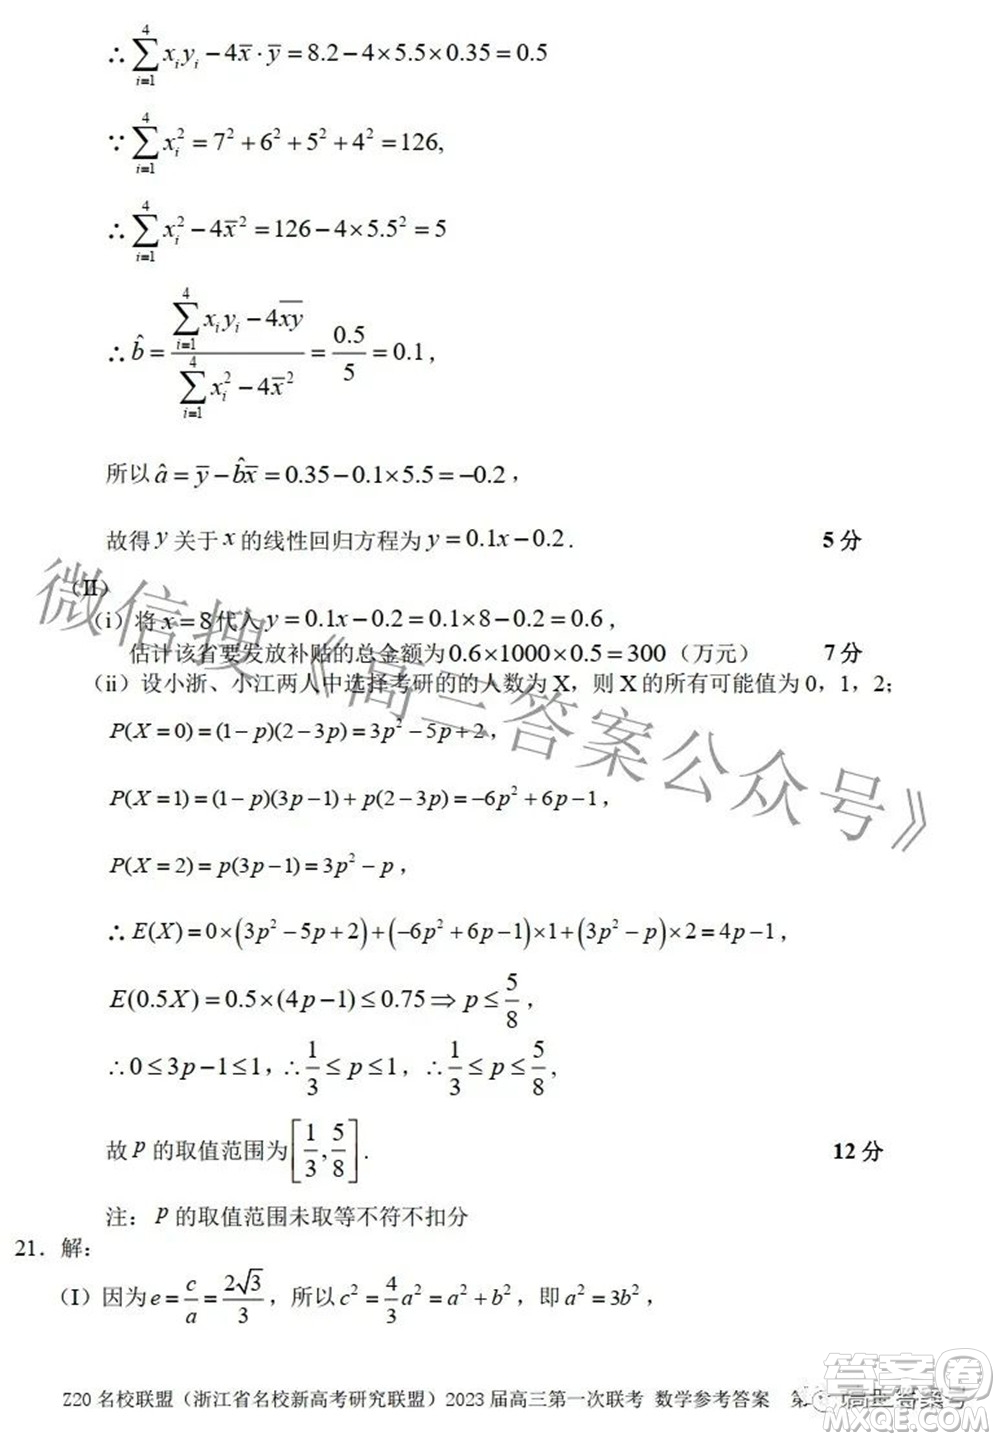 ∴ \sum_{i=1}^{4} x_i y_i − 4\bar{x}·\bar{y} = 8.2 − 4×5.5×0.35 = 0.5
∵ \sum_{i=1}^{4} x_i^2 = 7^2 + 6^2 + 5^2 + 4^2 = 126,
∴ \sum_{i=1}^{4} x_i^2 − 4\bar{x}^2 = 126 − 4×5.5^2 = 5
∴ \hat{b} = \frac{\sum_{i=1}^{4} x_i y_i − 4\overline{xy}}{\sum_{i=1}^{4} x_i^2 − 4\bar{x}^2} = \frac{0.5}{5} = 0.1，
所以 \hat{a} = \bar{y} − \hat{b}\bar{x} = 0.35 − 0.1×5.5 = −0.2，
故得 y 关于 x 的线性回归方程为 y = 0.1x − 0.2． 5 分
（Ⅱ）
（i）将 x = 8 代入 y = 0.1x − 0.2 = 0.1×8 − 0.2 = 0.6，
估计该省要发放补贴的总金额为 0.6×1000×0.5 = 300（万元） 7 分
（ii）设小浙、小江两人中选择考研的的人数为 X，则 X 的所有可能值为 0，1，2；
P(X = 0) = (1− p)(2 − 3p) = 3p^2 − 5p + 2，
P(X = 1) = (1− p)(3p −1) + p(2 − 3p) = −6p^2 + 6p −1，
P(X = 2) = p(3p −1) = 3p^2 − p，
∴ E(X) = 0×(3p^2 − 5p + 2) + (−6p^2 + 6p −1)×1 + (3p^2 − p)×2 = 4p −1，
E(0.5X) = 0.5×(4p −1) ≤ 0.75 ⇒ p ≤ \frac{5}{8}，
∴ 0 ≤ 3p −1 ≤ 1，∴ \frac{1}{3} ≤ p ≤ 1，∴ \frac{1}{3} ≤ p ≤ \frac{5}{8}，
故 p 的取值范围为 [\frac{1}{3}, \frac{5}{8}]． 12 分
注：p 的取值范围未取等不符不扣分
21．解：
（I）因为 e = \frac{c}{a} = \frac{2\sqrt{3}}{3}，所以 c^2 = \frac{4}{3}a^2 = a^2 + b^2，即 a^2 = 3b^2，
Z20 名校联盟（浙江省名校新高考研究联盟）2023 届高三第一次联考 数学参考答案 第
微信搜《高三答案公众号》
答案圈
MXQE.COM